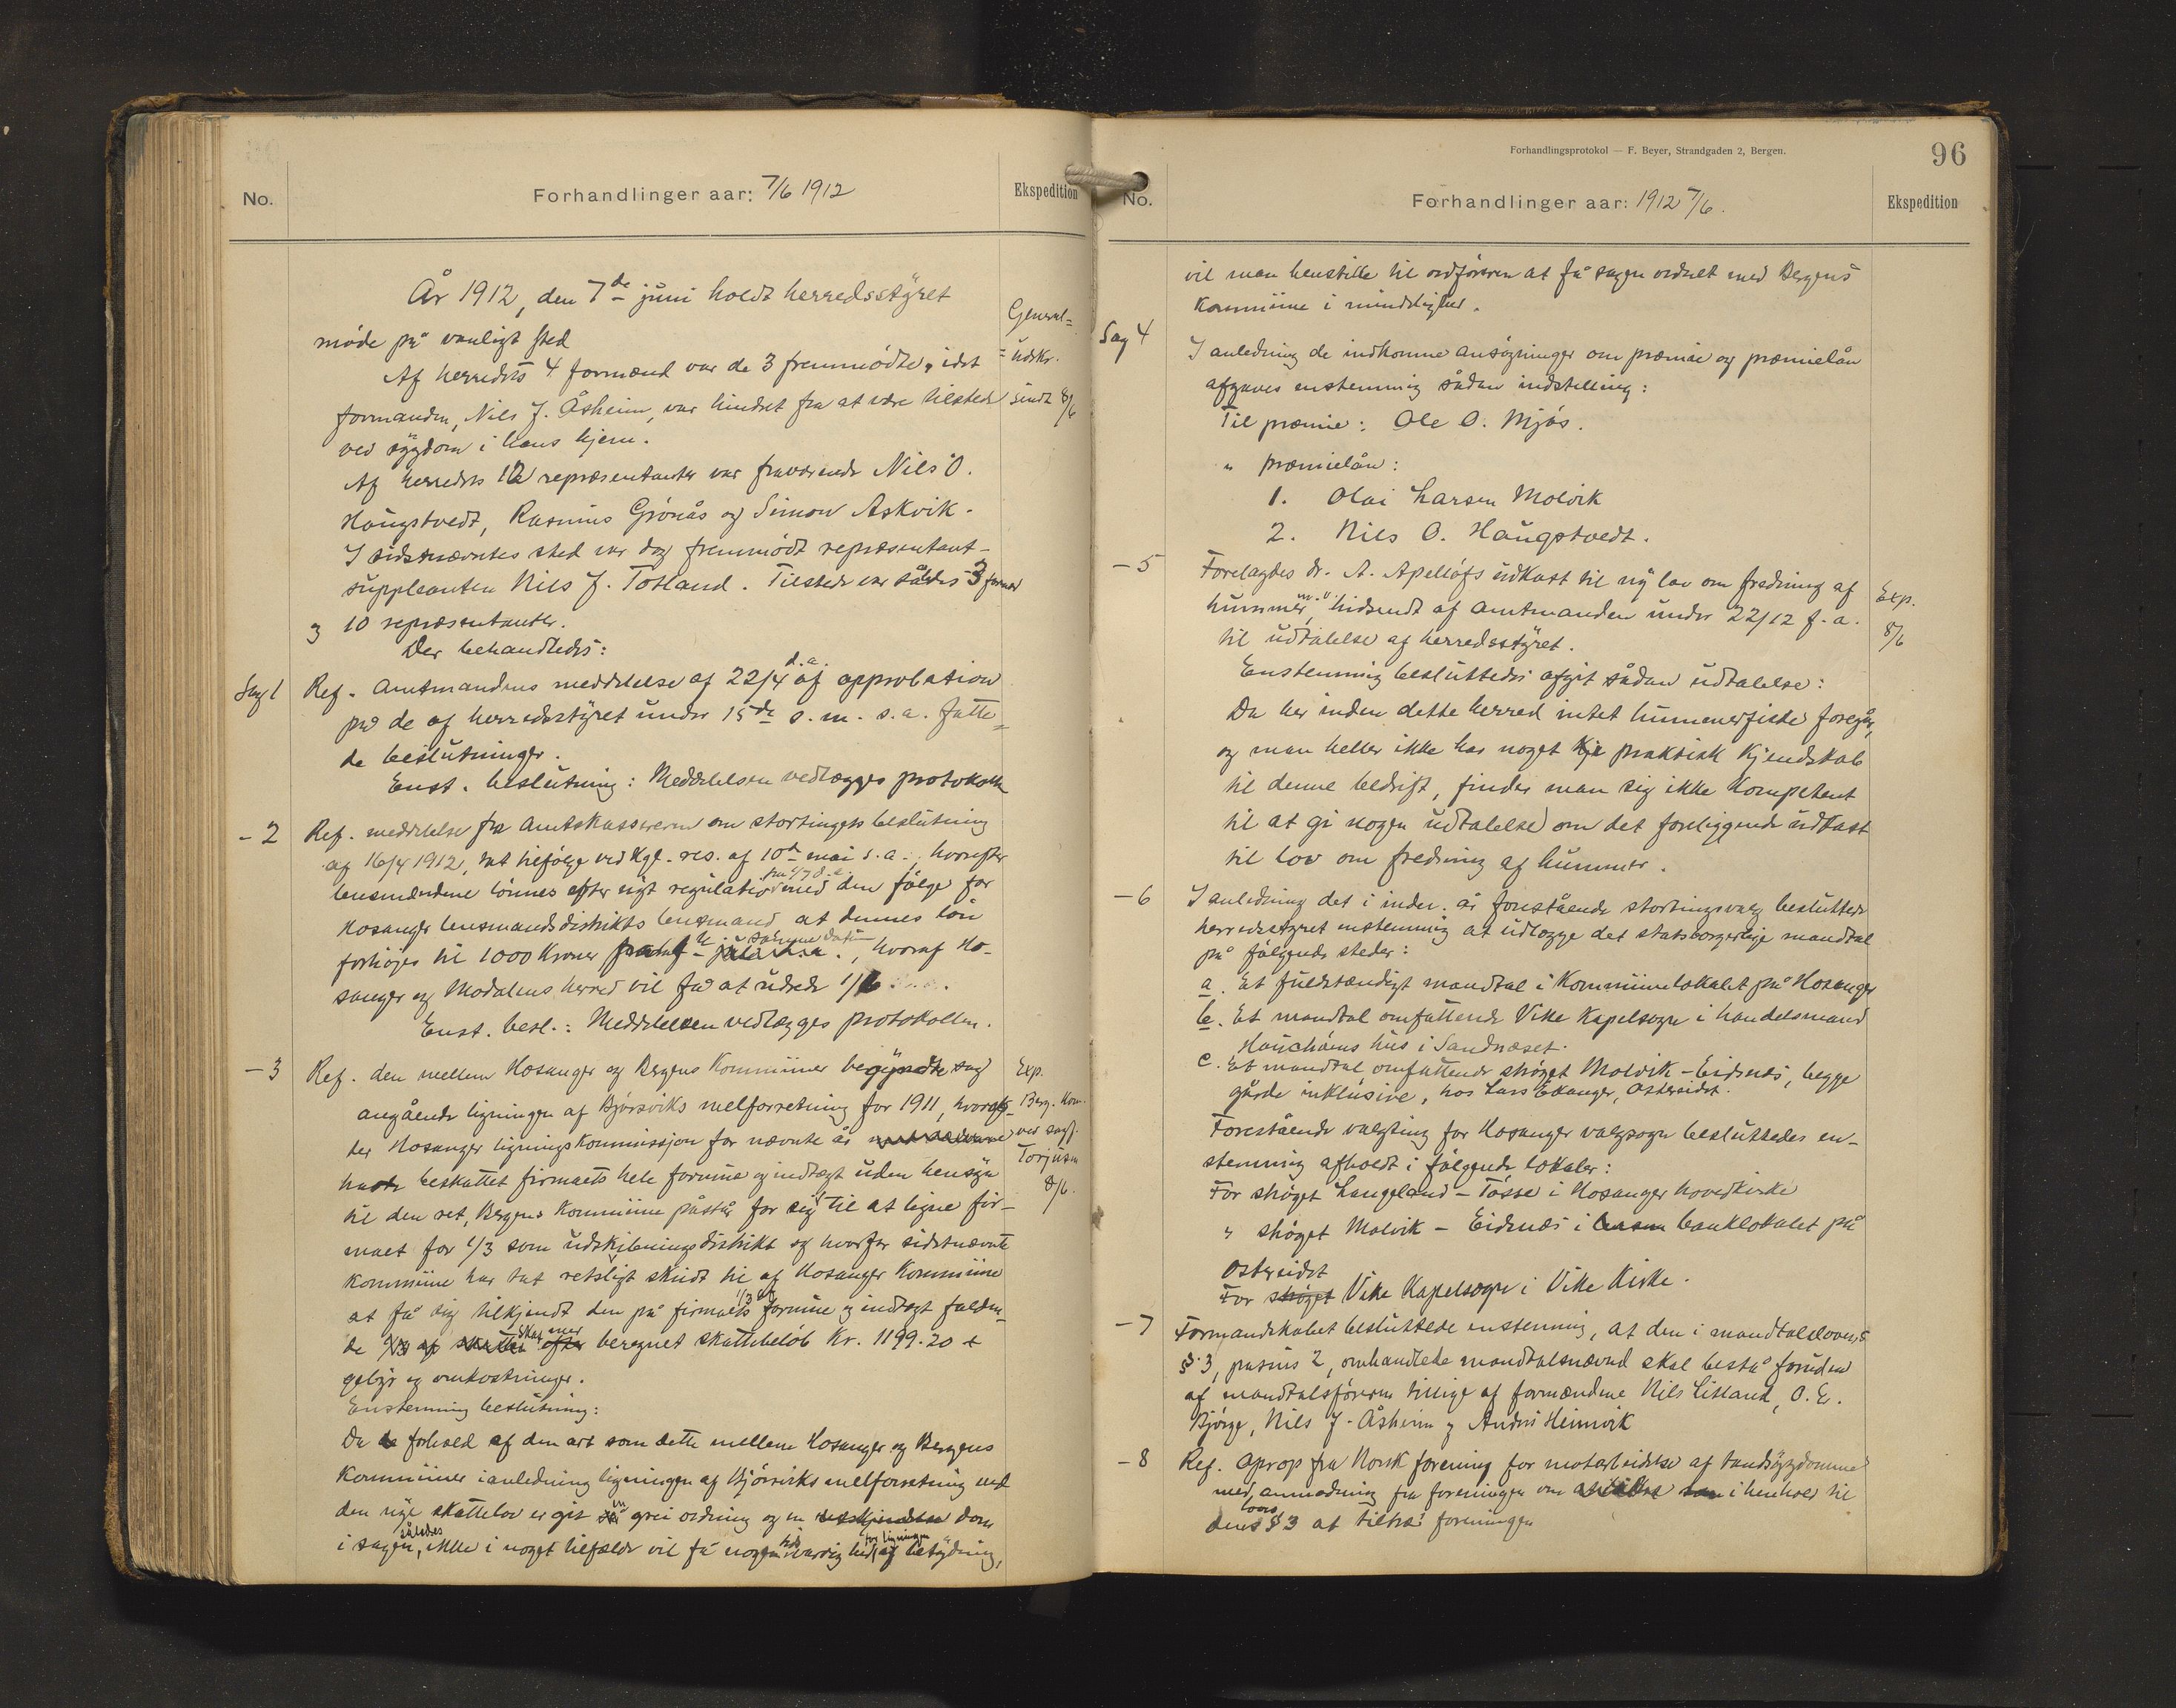 No.
Forhandlinger aar: 7/6 1912
Ekspedition
År 1912, den 7de juni holdt herredsstyret
møde på vanligt sted
General=
=udskr.
sendt 8/6
Af herredets 4 formænd var de 3 fremmødte, idet
formanden, Nils J. Åsheim, var hindret fra at være tilstede
ved sygdom i hans hjem.
Af herredets 12 repræsentanter var fraværende Nils O.
Haugstvedt, Rasmus Grønås og Simon Askvik.
I sidstnævntes sted var dog fremmødt repræsentant-
suppleanten Nils J. Totland. Tilstede var således 3 formænd
og 10 repræsentanter.
Der behandledes:
Sag 1
Ref. Amtmandens meddelelse af 22/4 d.a. af approbation
på de af herredsstyret under 15de s.m. s.a. fatte=
de beslutninger.
Enst. beslutning: Meddelelsen vedlægges protokollen
- 2
Ref. meddelelse fra Amtskassereren om stortingets beslutning
af 16/4 1912, tat tilfølge ved Kgl. res. af 10de mai s.a., hvorefter
lensmændene lønnes efter nyt regulativ fra 1/7 d.a. med den følge for
Hosanger lensmandsdistrikts lensmand at dennes løn
forhøies til 1000 Kroner fra samme datum, hvoraf Ho-
sanger og Modalens herred vil få at udrede 1/6
Enst. besl.: Meddelelsen vedlægges protokollen.
- 3
Ref. den mellem Hosanger og Bergens Kommuner begyndte sag
angående ligningen af Bjørsviks melforretning for 1911, hvoref-
ter Hosanger ligningskommissjon for nævnte år
havde beskattet firmaets hele formue og indtægt uden hensyn
til den ret, Bergens Kommune påstår for sig til at ligne fir-
maet for 1/3 som udskibningsdistrikt og hvorfor sidstnævnte
Kommune har tat retsligt skridt til af Hosanger Kommune
at få sig tilkjendt den på 1/3 af firmaets formue og indtægt falden-
de skat med beregnet skattebeløb Kr. 1199.20 +
gebyr og omkostninger.
Exp.
Berg. Kom.
ved sagf.
Torjusen
8/6.
Enstemmig beslutning:
Da forhold af den art som dette mellem Hosanger og Bergens
Kommuner i anledning ligningen af Bjørsviks melforretning ved
den nye skattelov er git en grei ordning og en dom
i sagen, således ikke i noget tilfælde vil få nogen for ligningen betydning,
Forhandlingsprotokol — F. Beyer, Strandgaden 2, Bergen.
96
No.
Forhandlinger aar: 1912 7/6.
Ekspedition
vil man henstille til ordføreren at få sagen ordnet med Bergens
Kommune i mindelighed.
Sag 4
I anledning de indkomne ansøgninger om præmie og præmielån
afgaves enstemmig sådan indstilling:
Til præmie: Ole O. Mjøs.
" præmielån:
1. Olai Larsen Molvik
2. Nils O. Haugstvedt.
- 5
Forelagdes dr. A. Apelløfs udkast til ny lov om fredning af
hummer m.v. hidsendt af amtmanden under 22/12 f.a.
til udtalelse af herredsstyret.
Exp.
8/6
Enstemmig besluttedes afgit sådan udtalelse:
Da her inden dette herred intet hummerfiske foregår,
og man heller ikke har noget praktisk Kjendskab
til denne bedrift, finder man sig ikke Kompetent
til at gi nogen udtalelse om det foreliggende udkast
til lov om fredning af hummer.
- 6
I anledning det i indev. år forestående stortingsvalg besluttede
herredsstyret enstemmig at udlægge det statsborgerlige mandtal
på følgende steder:
a. Et fuldstændigt mandtal i Kommunelokalet på Hosanger
b. Et mandtal omfattende Vike Kapelsogn i handelsmand
hus i Sandnæset.
c. Et mandtal omfattende strøget Molvik-Eidsnes, begge
gårde inklusive, hos Lars Ekanger, Ostereidet.
Forestående valgting for Hosanger valgsogn besluttedes en-
stemmig afholdt i følgende lokaler:
For strøget Langeland - Tøsse i Hosanger hovedkirke
" strøget Molvik - Eidsnes i banklokalet på
Ostereidet
For strøget Vike Kapelsogn i Vike Kirke.
- 7
Formandskabet besluttede enstemmig, at den i mandtalslovens
§ 3, passus 2, omhandlede mandtalsnævnd skal bestå foruden
af mandtalsføreren tillige af formændene Nils Litland, O. E.
Bjørge, Nils J. Åsheim og Anders Heimvik
- 8
Ref. Oprop fra Norsk forening for motarbeidelse af tandsygdomme
med anmodning fra foreningen om i henhold til
dens loves § 3 at tiltræ foreningen